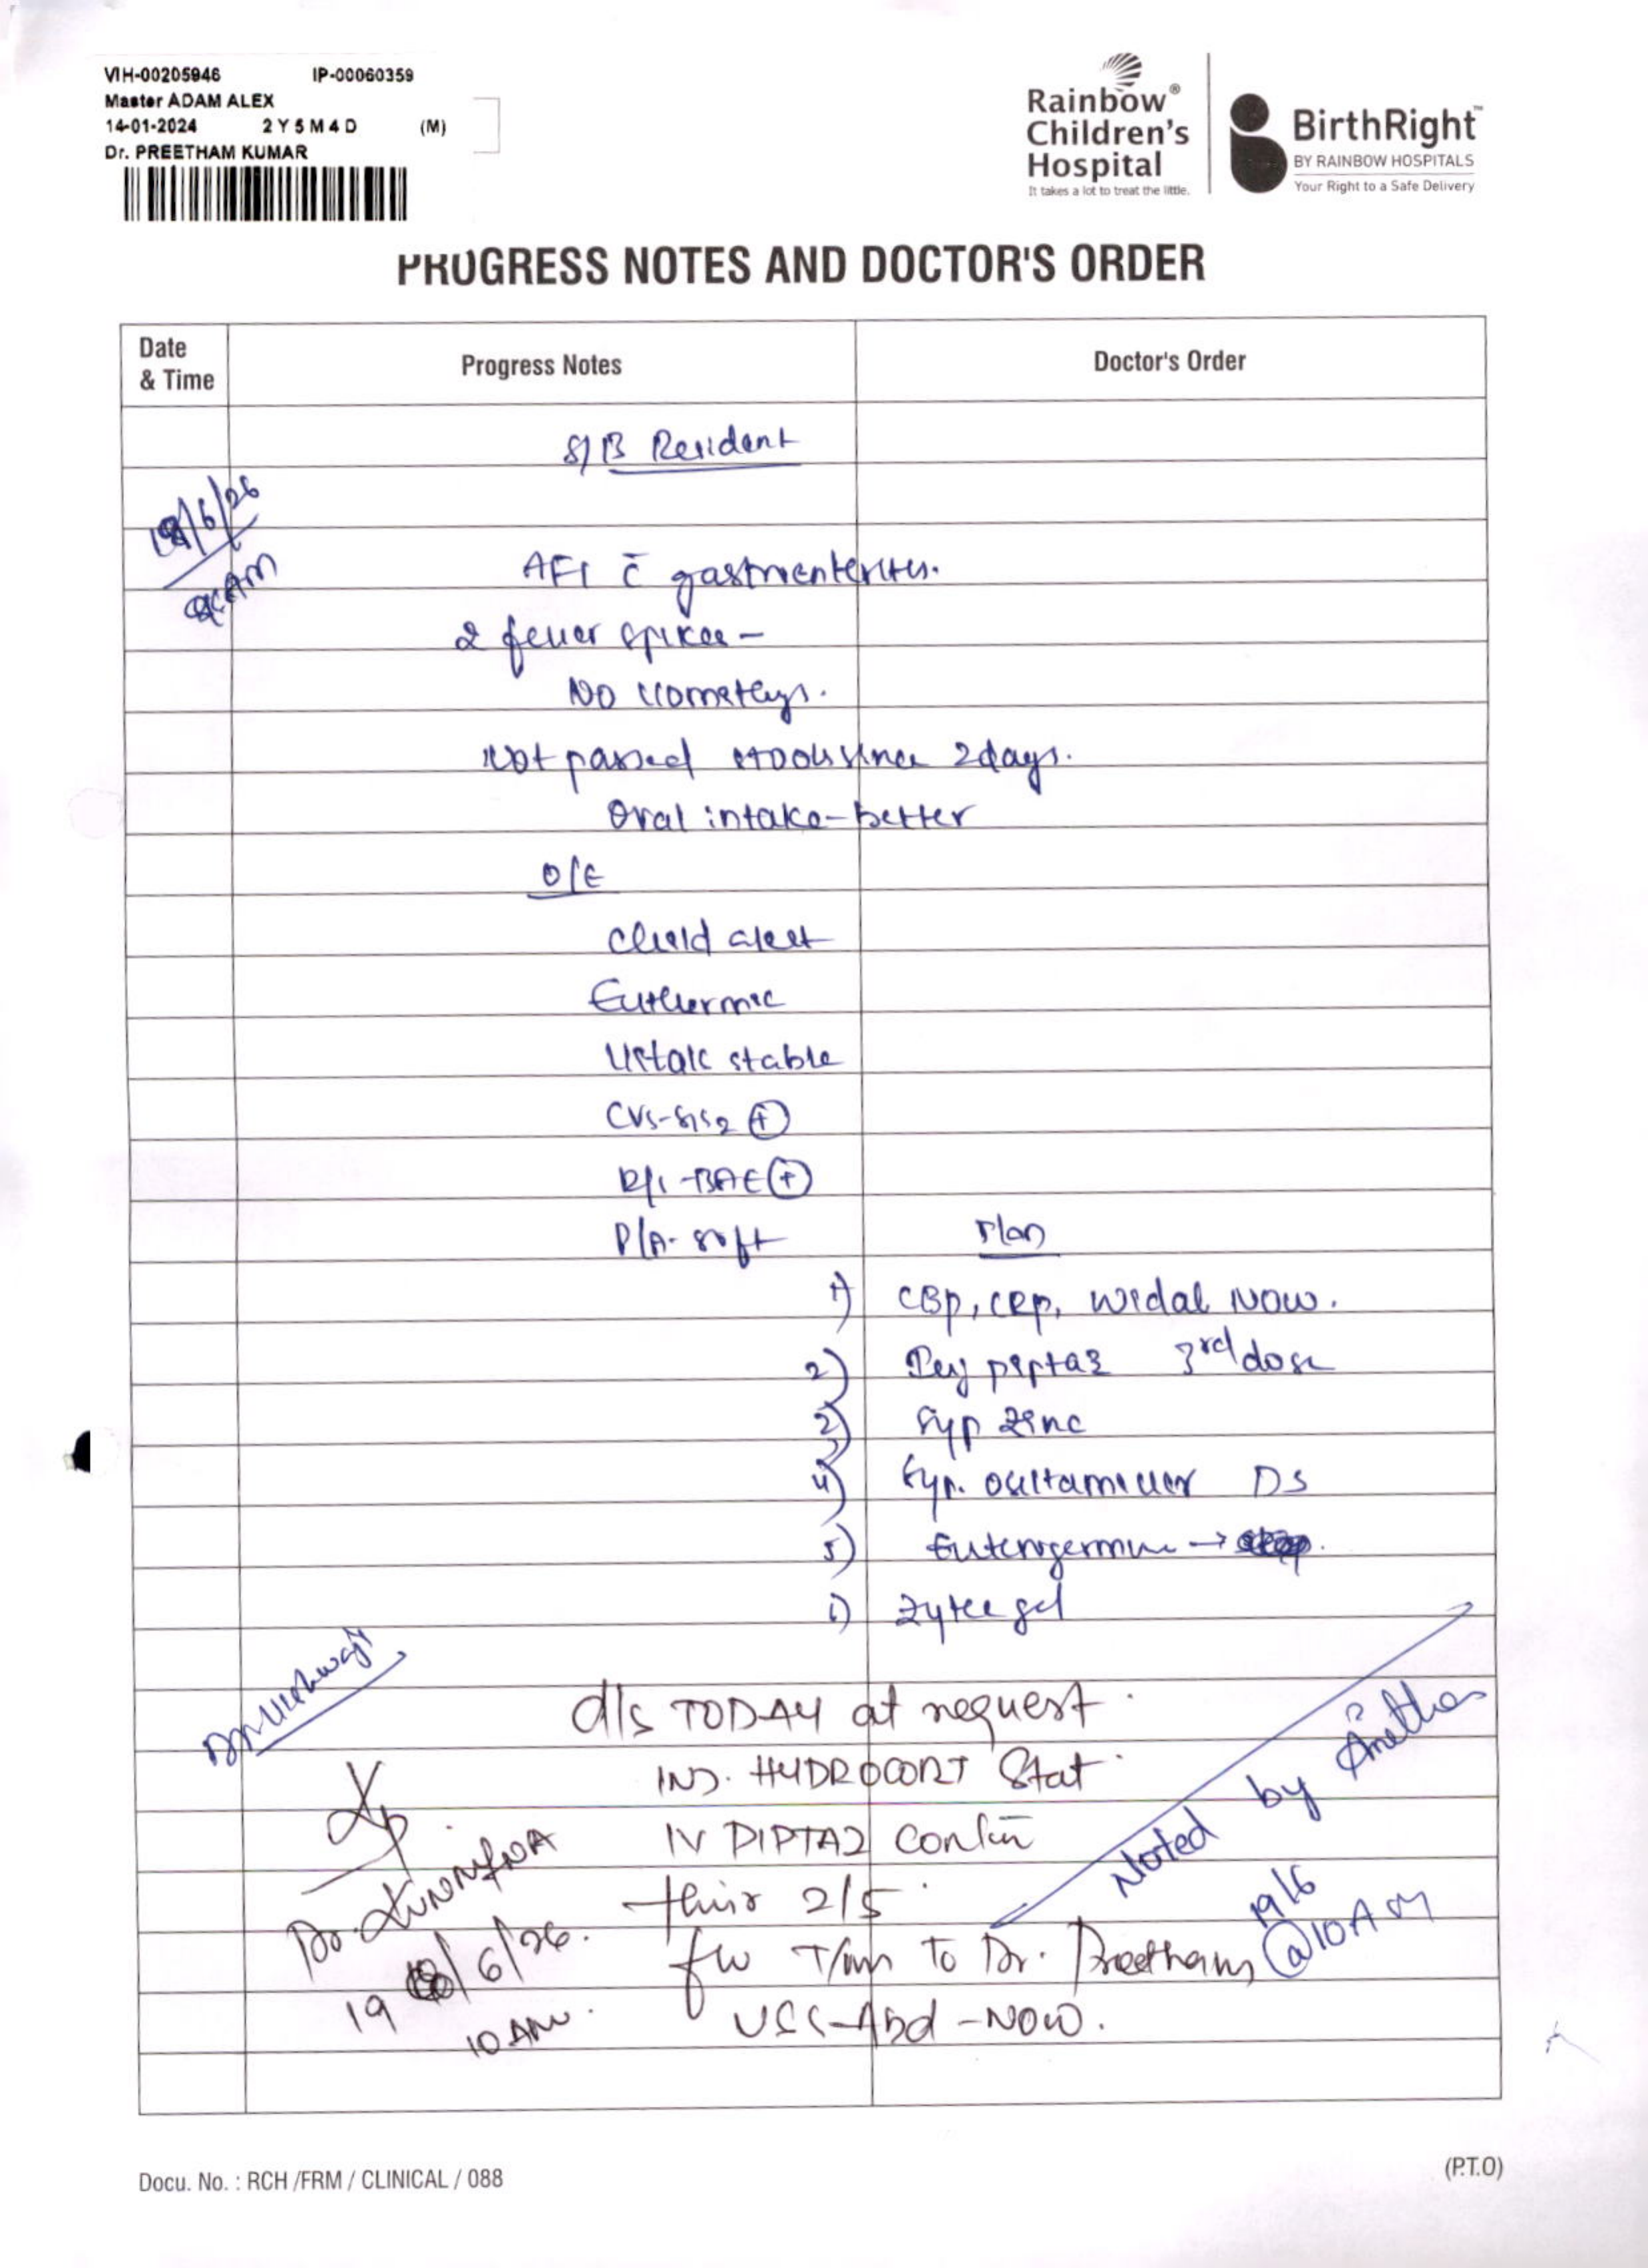 VIH-00205946 IP-00060359
Master ADAM ALEX
14-01-2024 2 Y 5 M 4 D (M)
Dr. PREETHAM KUMAR
Rainbow® Children's Hospital
It takes a lot to treat the little.
BirthRight™
BY RAINBOW HOSPITALS
Your Right to a Safe Delivery
PROGRESS NOTES AND DOCTOR'S ORDER
Date & Time Progress Notes Doctor's Order
S/B Resident
/6/26
AM
AFI c̄ gastroenteritis.
2 fever spikes -
NO vomitings.
Not passed stools since 2 days.
Oral intake - better
O/E
Child alert
Euthermic
Vitals stable
CVS - S1S2 (+)
R/S - BAE (+)
P/A - soft
Plan
1) CBP, CRP, Widal NOW.
2) Inj piptaz 3rd dose
3) Syp Zinc
4) Syp. oseltamivir DS
5) Enterogermina →
6) Zytee gel
d/s TODAY at request.
INJ. HYDROCORT Stat.
IV PIPTAZ contin
2/5
Noted by
19/6
@10AM
T/m TO Dr. Preetham
USS - Abd - NOW.
Dr.
19 /6/26.
10 AM.
Docu. No. : RCH /FRM / CLINICAL / 088
(P.T.O)